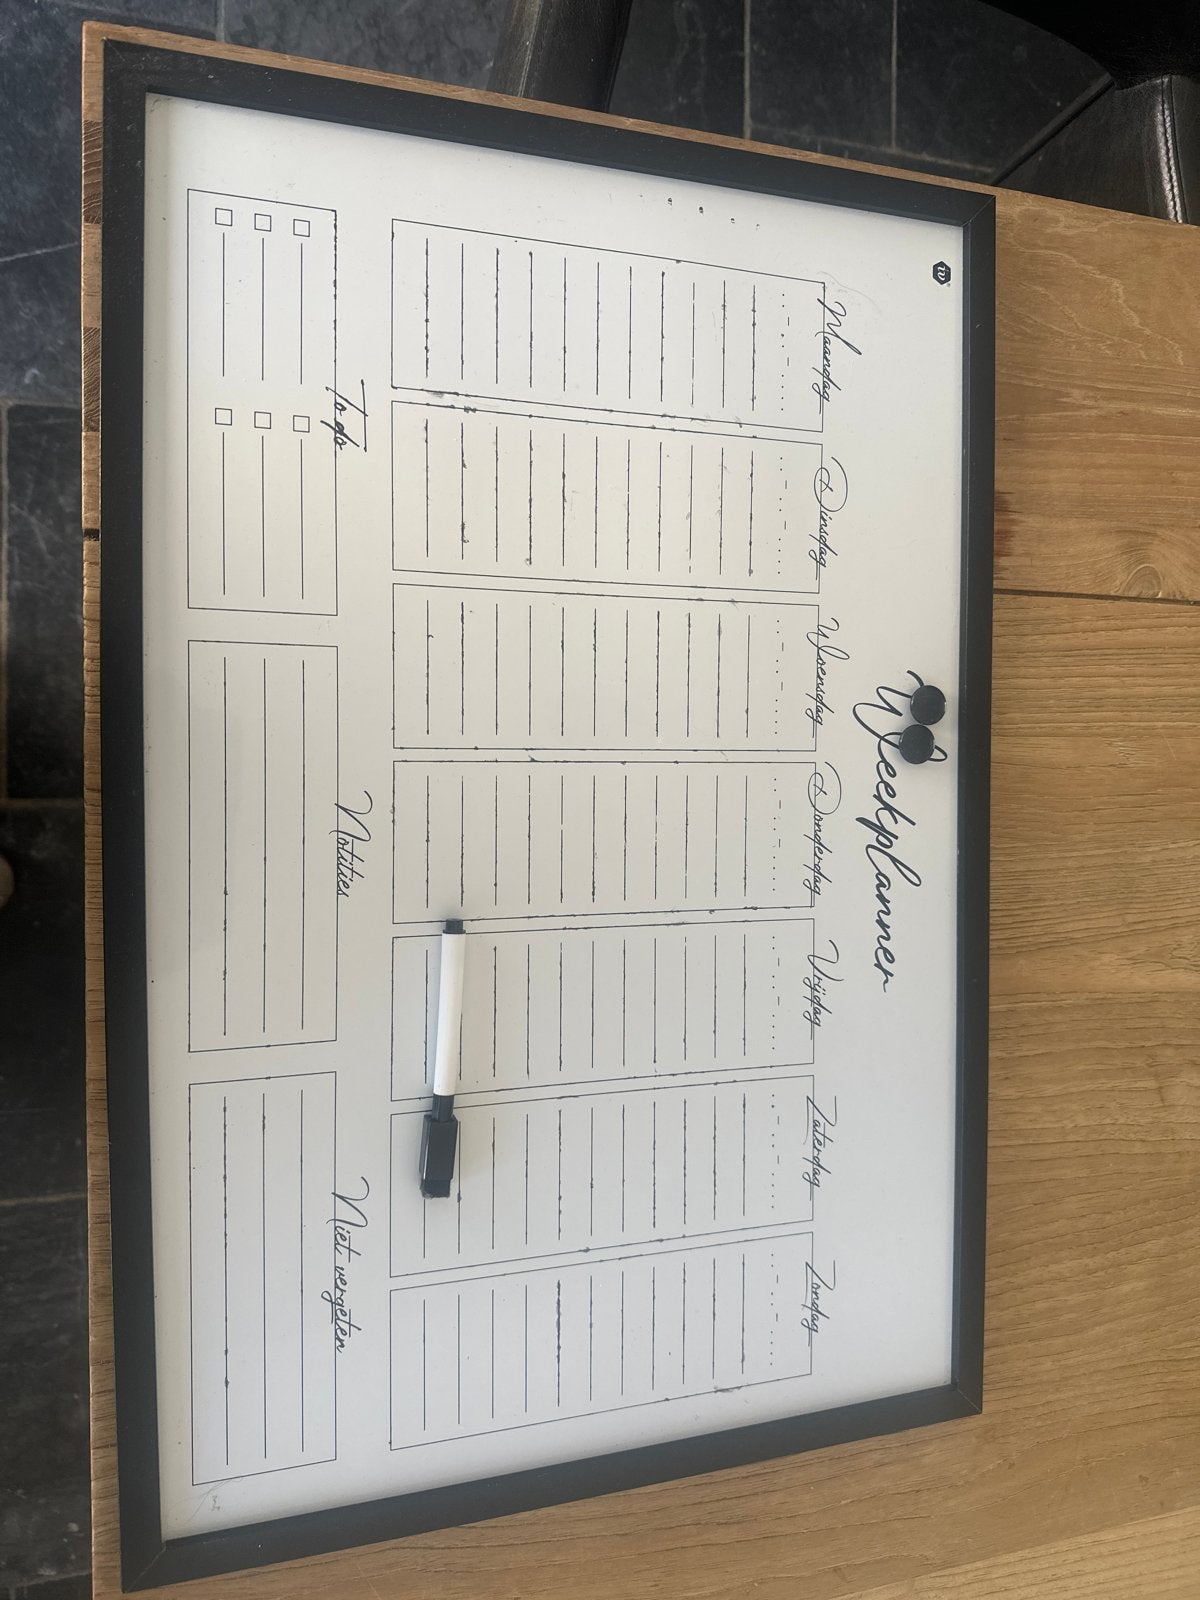 Weekplanner
Maandag Dinsdag Woensdag Donderdag Vrijdag Zaterdag Zondag
To do Notities Niet vergeten